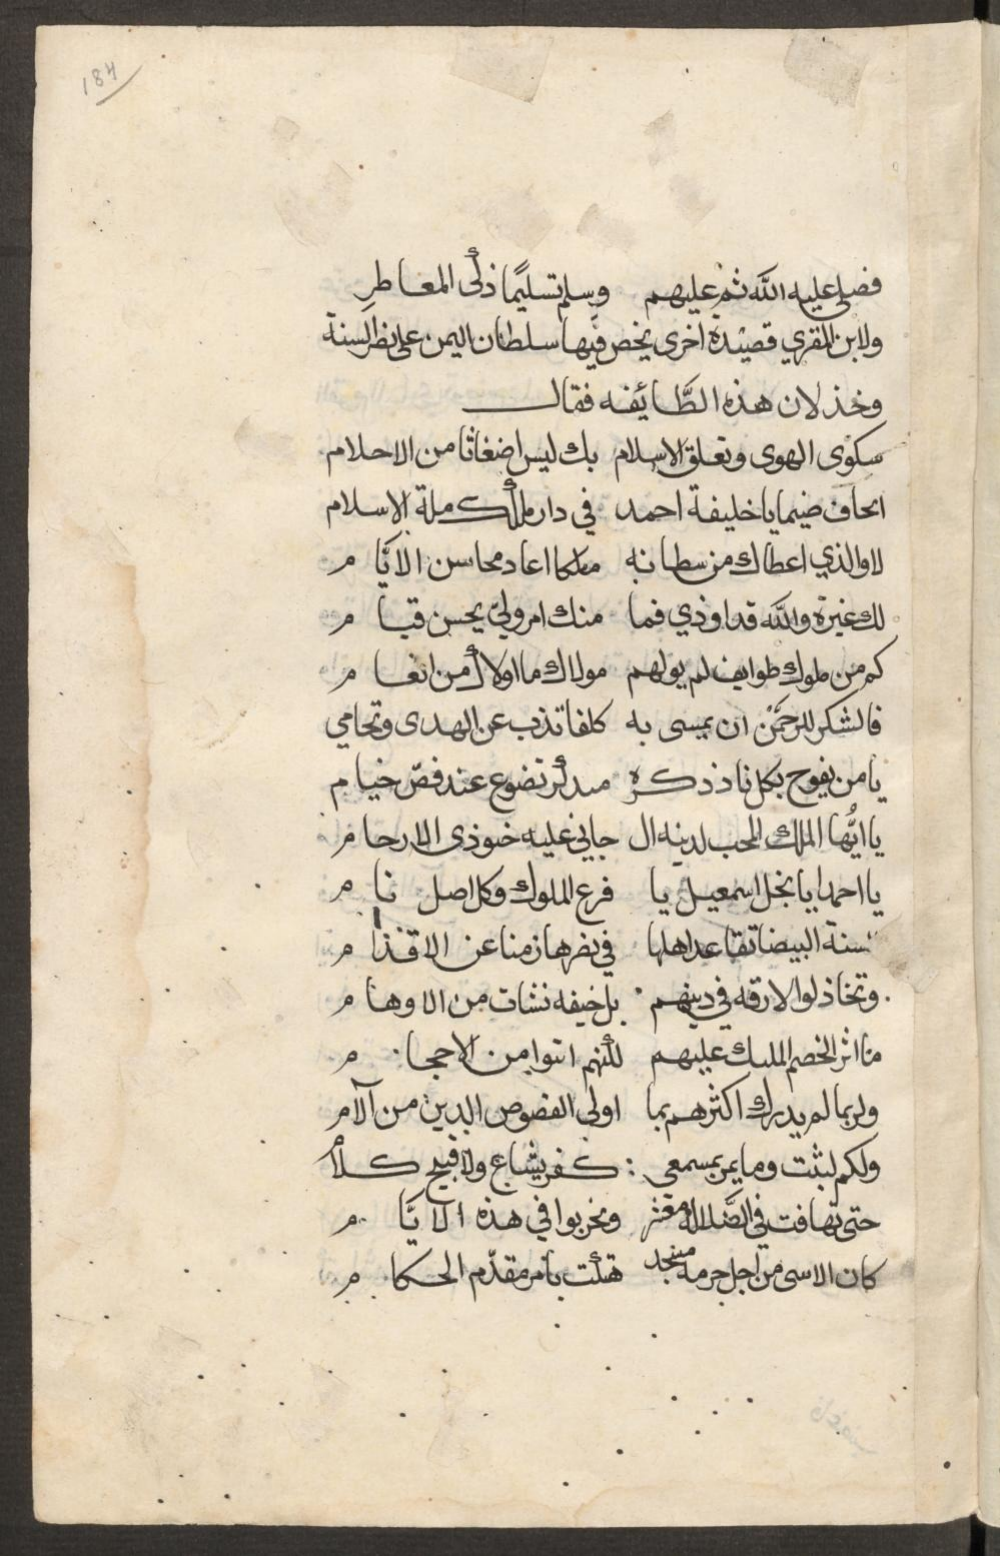 184
فصلى عليه الله ثم عليهم وسلم تسليمًا ذكى المعاطر
ولابن المقري قصيدة اخرى يخص فيها سلطان اليمن على نظر السنة
وخذلان هذه الطَّائفه فقال
سكوى الهوى وتعلق الاسلام بك ليس اضغاثا من الاحلام
ايخاف ضيما يا خليفة احمد في دار ملكك ملة الاسلام
لا والذي اعطاك من سطانه ملكا اعاد محاسن الايَّام
لك غيرة والله قد اوذي فما منك امرولي يحسن قيام
كم من ملوك طوايف لم يولهم مولاك ما اولاك من انعام
فالشكر للرحمن ان يمسى به كلفا تذب عن الهدى وتحامي
يا من يفوح بكل ناد ذكره تضوع عند فض خيام
يا ايُّها الملك المحب لدينه ال جاني عليه خنوذى الارحام
يا احمدا يا نجل اسمعيل يا فرع الملوك وكل اصل نام
سنة البيضا تقاعد اهلها في نصرها زمنا عن الاقدام
وتخاذلوا لا رقه في دينهم بل خيفه نشات من الاوهام
منا اثر الخصم المليك عليهم اتوا من الاحجام
ولربما لم يدرك اكثرهم بما اولى الفصوص الدين من آلام
ولكم لبثت وما يمر بمسمعى : كفر يشاع ولا قبيح كلام
حتى تهافت في الضَّلالة معشر وتخربوا في هذه الايَّام
كان الاسى من اجل جرمه منجد بامر مقدّم الحكام